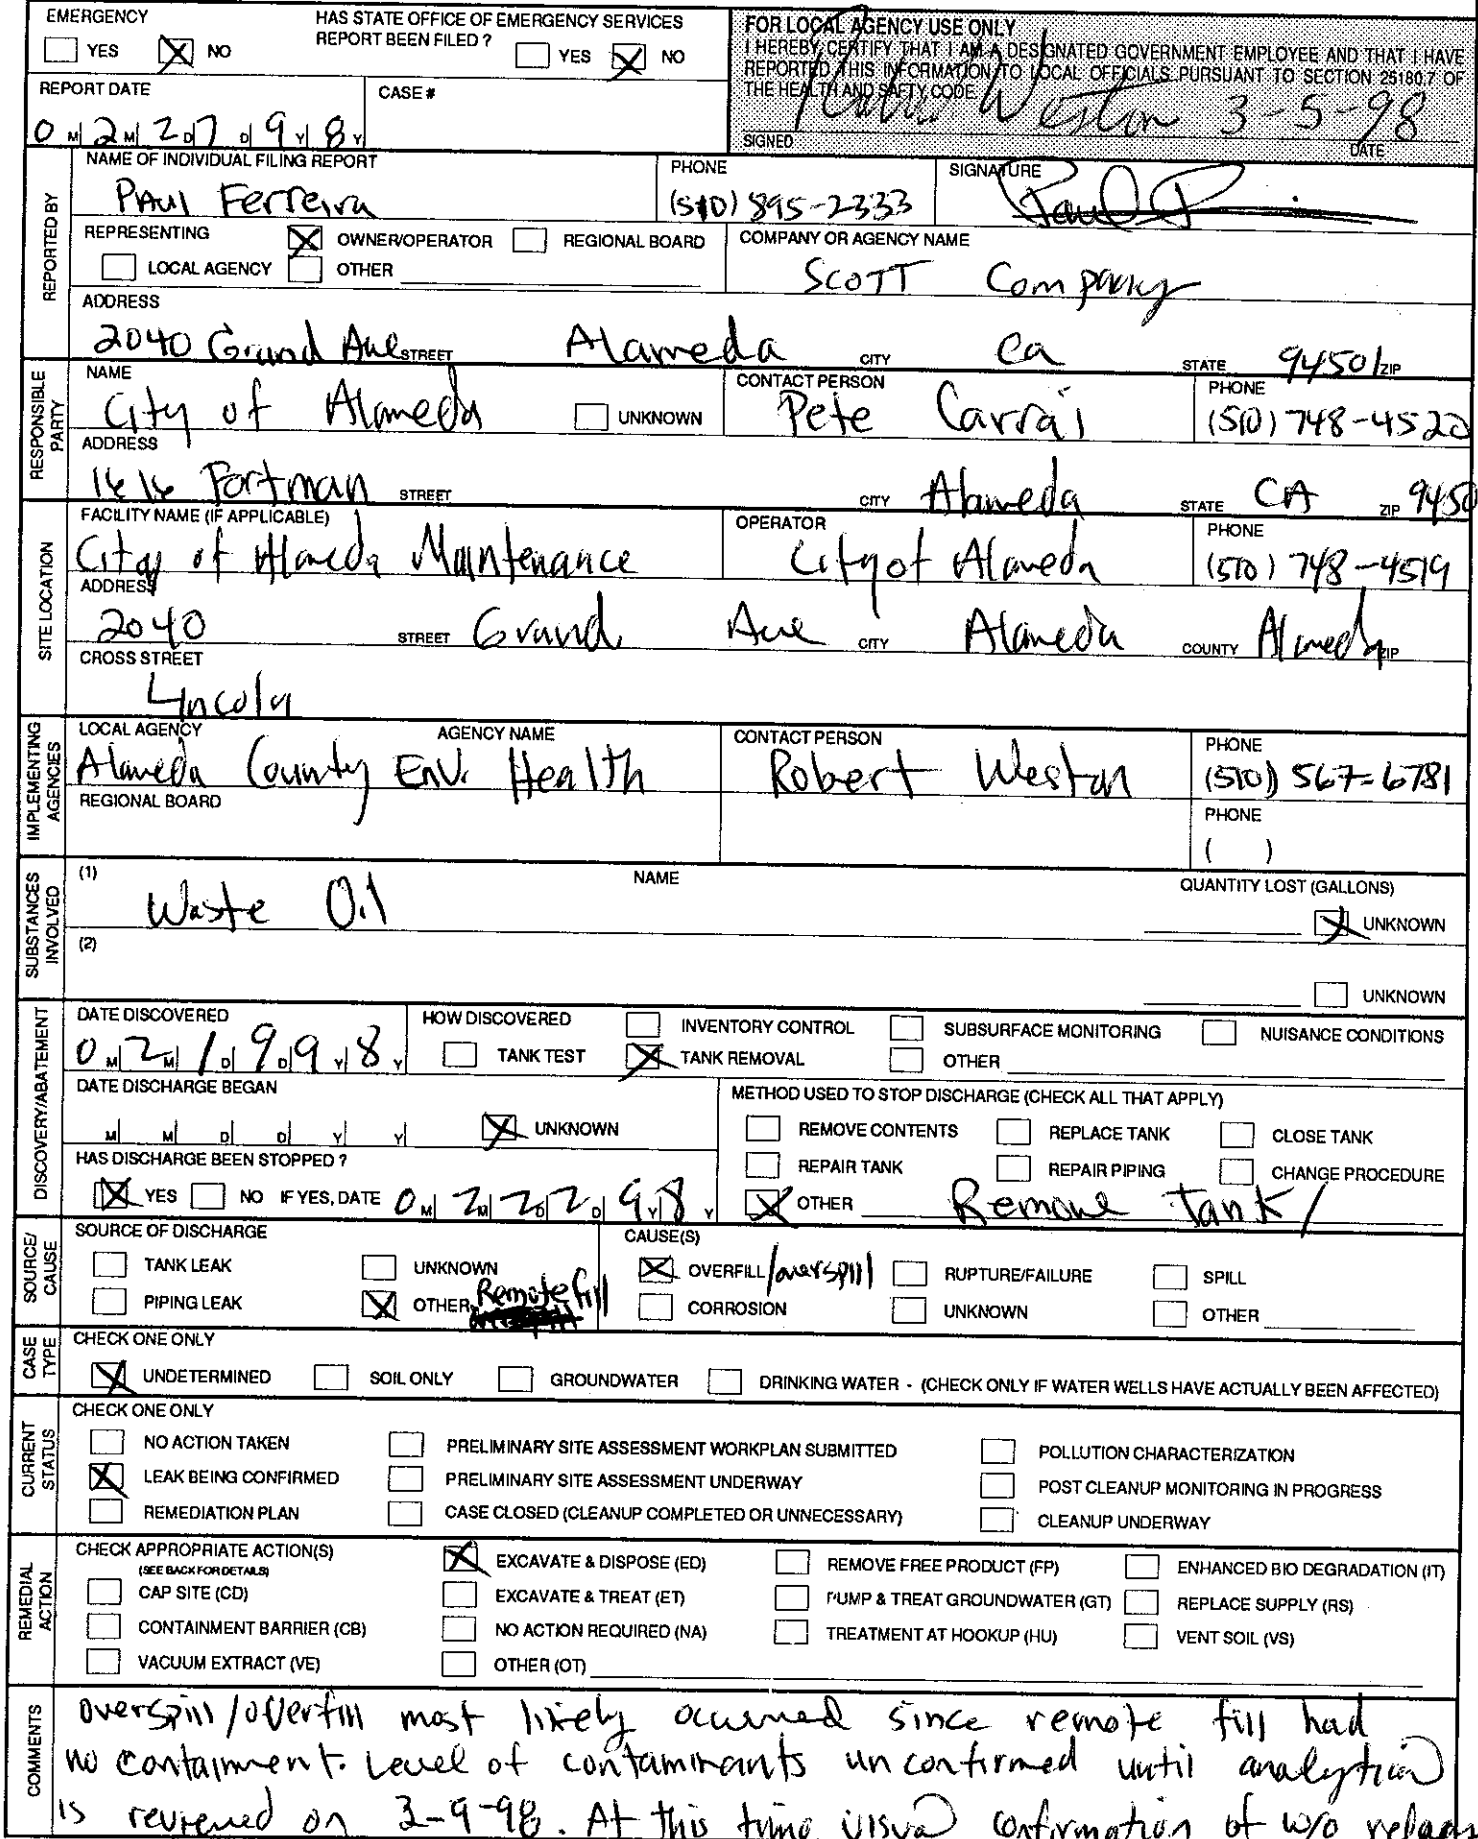 EMERGENCY
YES NO
HAS STATE OFFICE OF EMERGENCY SERVICES
REPORT BEEN FILED ?
YES NO
FOR LOCAL AGENCY USE ONLY
I HEREBY CERTIFY THAT I AM A DESIGNATED GOVERNMENT EMPLOYEE AND THAT I HAVE
REPORTED THIS INFORMATION TO LOCAL OFFICIALS PURSUANT TO SECTION 25180.7 OF
THE HEALTH AND SAFTY CODE.
Weston 3-5-98
SIGNED DATE
REPORT DATE
0 M 2 M 2 D 7 D 9 Y 8 Y
CASE #
REPORTED BY
NAME OF INDIVIDUAL FILING REPORT
PAUL Ferreira
PHONE
(510) 895-2333
SIGNATURE
REPRESENTING OWNER/OPERATOR REGIONAL BOARD
LOCAL AGENCY OTHER
COMPANY OR AGENCY NAME
SCOTT Company
ADDRESS
2040 Grand Ave STREET Alameda CITY Ca STATE 94501 ZIP
RESPONSIBLE PARTY
NAME
City of Alameda UNKNOWN
CONTACT PERSON
Pete Carrai
PHONE
(510) 748-4520
ADDRESS
1616 Fortman STREET CITY Alameda STATE CA ZIP 9450
SITE LOCATION
FACILITY NAME (IF APPLICABLE)
City of Alameda Maintenance
OPERATOR
City of Alameda
PHONE
(510) 748-4519
ADDRESS
2040 STREET Grand Ave CITY Alameda COUNTY Alameda ZIP
CROSS STREET
Lincoln
IMPLEMENTING AGENCIES
LOCAL AGENCY AGENCY NAME
Alameda County Env. Health
CONTACT PERSON
Robert Weston
PHONE
(510) 567-6781
REGIONAL BOARD
PHONE
( )
SUBSTANCES INVOLVED
(1) NAME QUANTITY LOST (GALLONS)
Waste Oil UNKNOWN
(2)
UNKNOWN
DISCOVERY/ABATEMENT
DATE DISCOVERED
0 M 2 M 1 D 9 D 9 Y 8 Y
HOW DISCOVERED INVENTORY CONTROL SUBSURFACE MONITORING NUISANCE CONDITIONS
TANK TEST TANK REMOVAL OTHER
DATE DISCHARGE BEGAN
M M D D Y Y UNKNOWN
METHOD USED TO STOP DISCHARGE (CHECK ALL THAT APPLY)
REMOVE CONTENTS REPLACE TANK CLOSE TANK
REPAIR TANK REPAIR PIPING CHANGE PROCEDURE
OTHER Remove tank/
HAS DISCHARGE BEEN STOPPED ?
YES NO IF YES, DATE 0 M 2 M 2 D 2 D 9 Y 8 Y
SOURCE/ CAUSE
SOURCE OF DISCHARGE
TANK LEAK UNKNOWN
PIPING LEAK OTHER Remote fill
CAUSE(S)
OVERFILL /overspill RUPTURE/FAILURE SPILL
CORROSION UNKNOWN OTHER
CASE TYPE
CHECK ONE ONLY
UNDETERMINED SOIL ONLY GROUNDWATER DRINKING WATER - (CHECK ONLY IF WATER WELLS HAVE ACTUALLY BEEN AFFECTED)
CURRENT STATUS
CHECK ONE ONLY
NO ACTION TAKEN PRELIMINARY SITE ASSESSMENT WORKPLAN SUBMITTED POLLUTION CHARACTERIZATION
LEAK BEING CONFIRMED PRELIMINARY SITE ASSESSMENT UNDERWAY POST CLEANUP MONITORING IN PROGRESS
REMEDIATION PLAN CASE CLOSED (CLEANUP COMPLETED OR UNNECESSARY) CLEANUP UNDERWAY
REMEDIAL ACTION
CHECK APPROPRIATE ACTION(S)
(SEE BACK FOR DETAILS)
EXCAVATE & DISPOSE (ED) REMOVE FREE PRODUCT (FP) ENHANCED BIO DEGRADATION (IT)
CAP SITE (CD) EXCAVATE & TREAT (ET) PUMP & TREAT GROUNDWATER (GT) REPLACE SUPPLY (RS)
CONTAINMENT BARRIER (CB) NO ACTION REQUIRED (NA) TREATMENT AT HOOKUP (HU) VENT SOIL (VS)
VACUUM EXTRACT (VE) OTHER (OT)
COMMENTS
overspill/overfill most likely occurred since remote fill had
no containment. Level of contaminants unconfirmed until analytical
is reviewed on 3-9-98. At this time visual confirmation of w/o